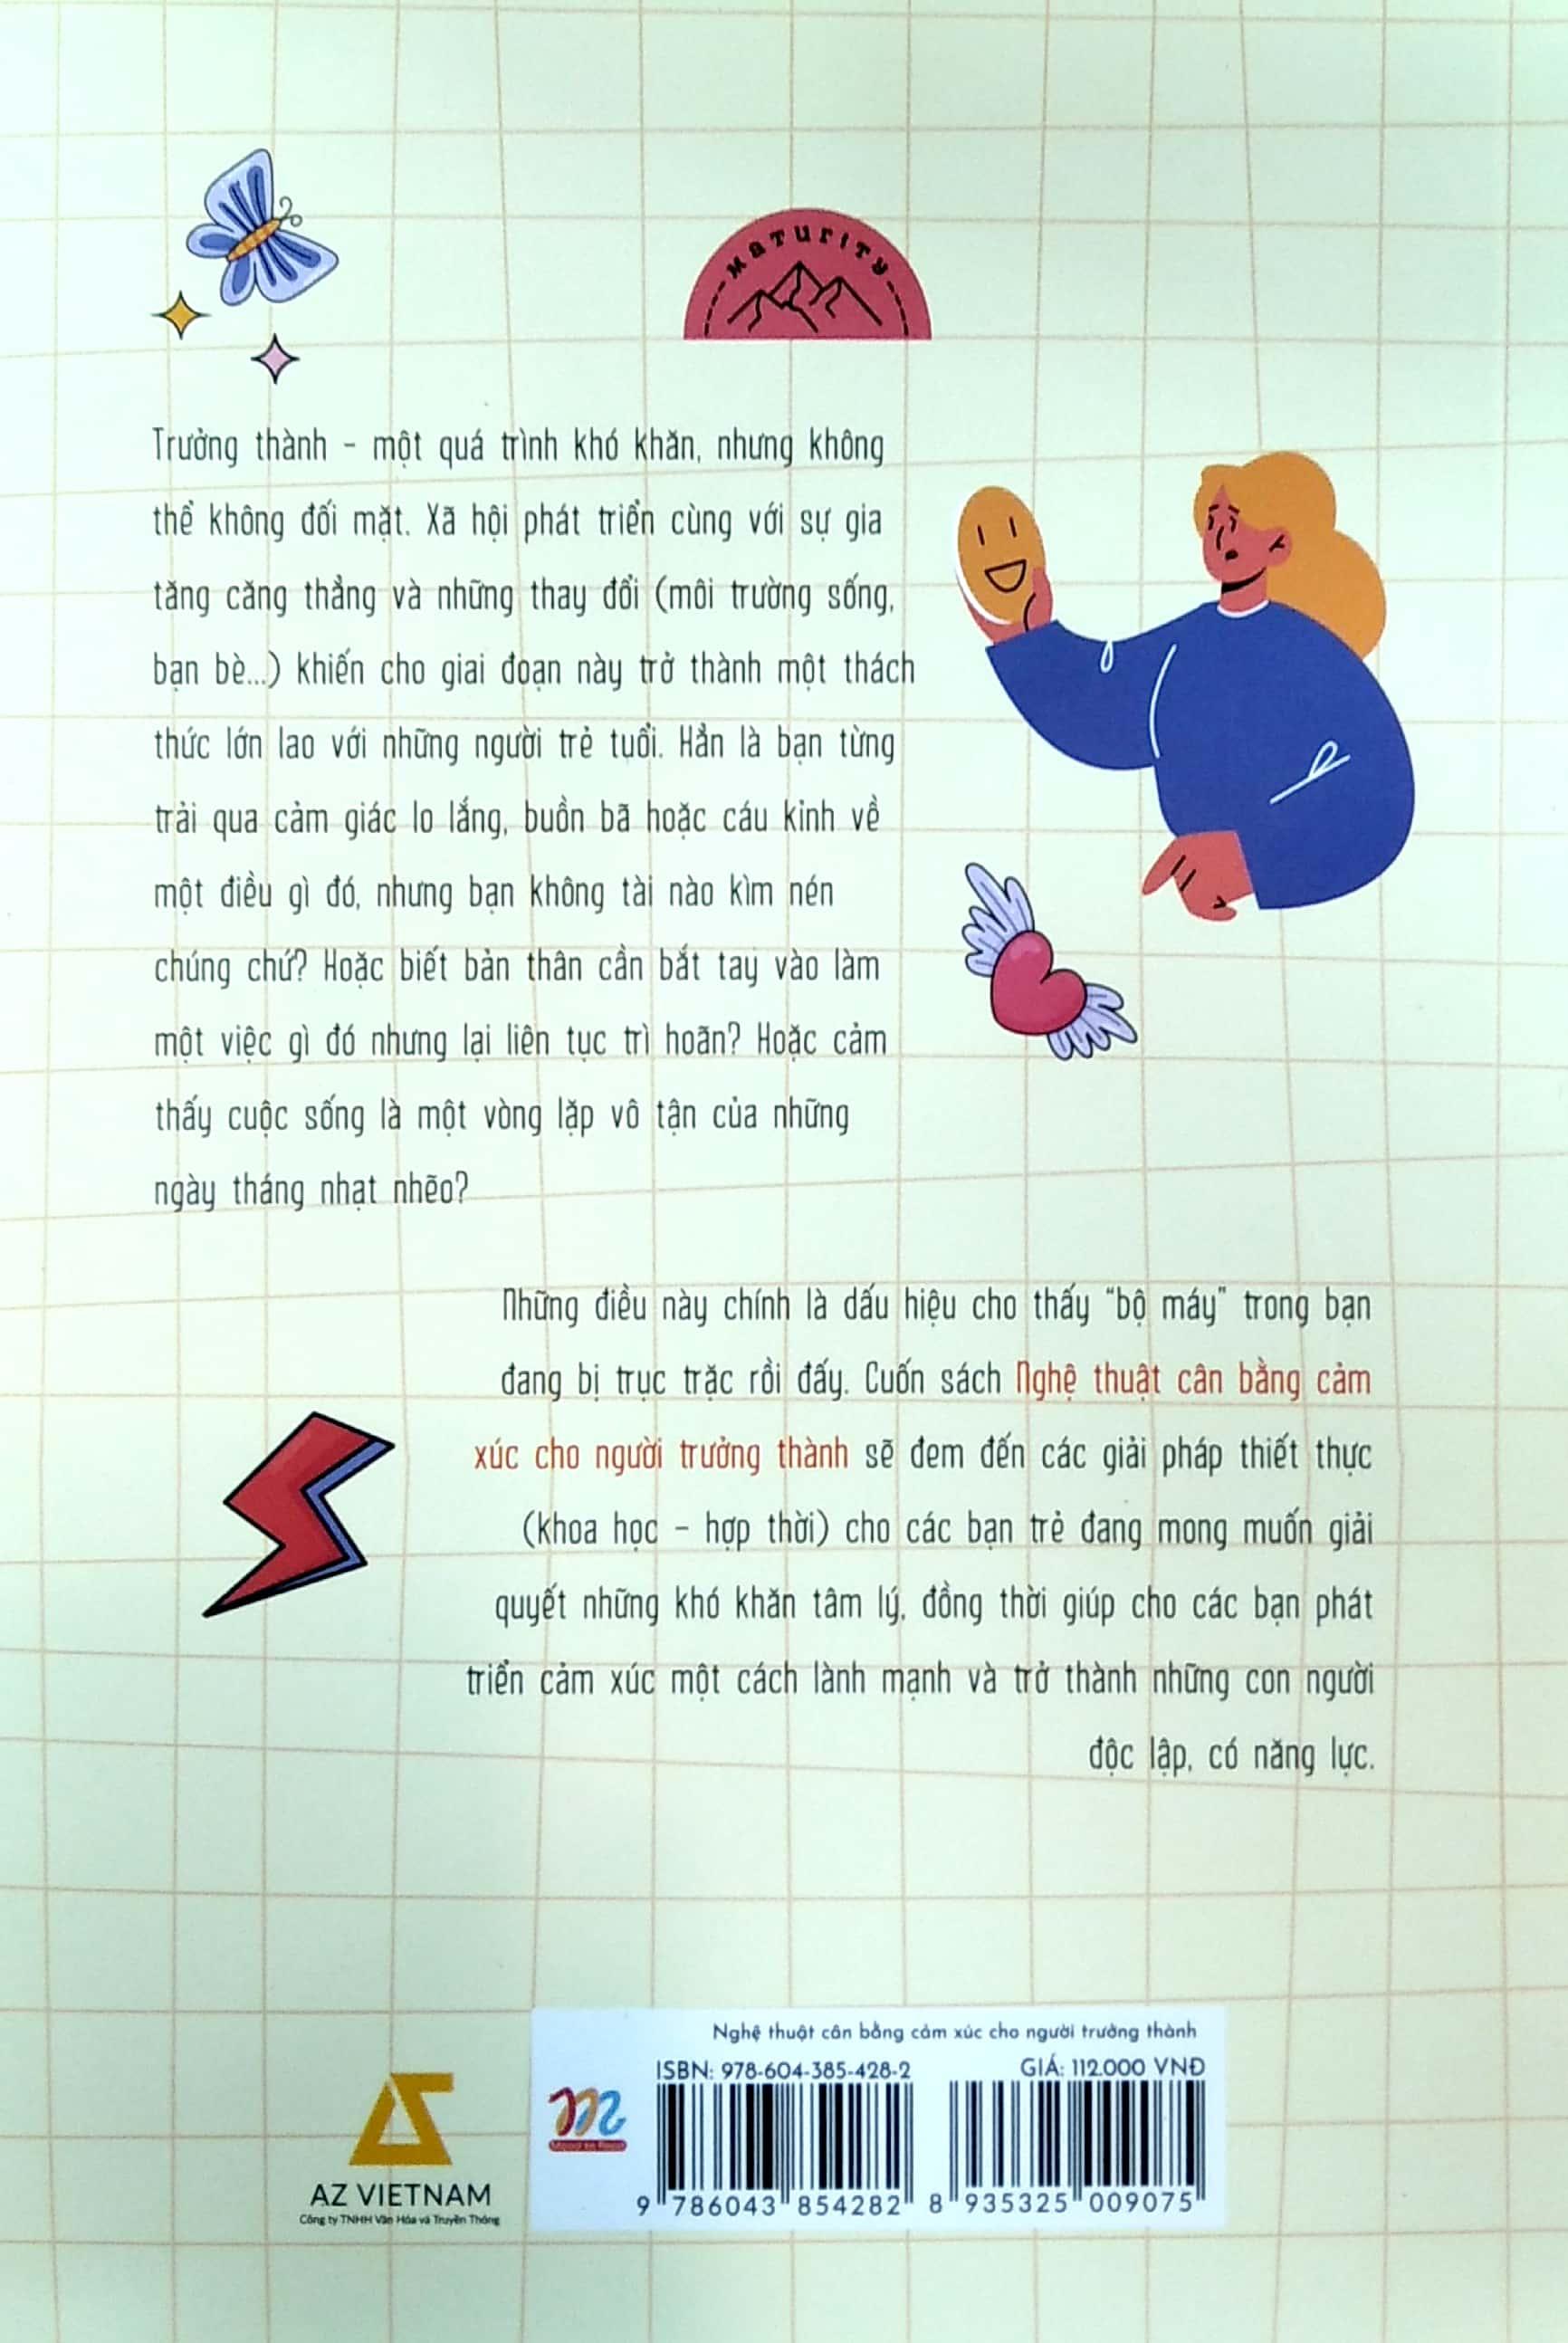 MATURITY
Trưởng thành – một quá trình khó khăn, nhưng không
thể không đối mặt. Xã hội phát triển cùng với sự gia
tăng căng thẳng và những thay đổi (môi trường sống,
bạn bè...) khiến cho giai đoạn này trở thành một thách
thức lớn lao với những người trẻ tuổi. Hẳn là bạn từng
trải qua cảm giác lo lắng, buồn bã hoặc cáu kỉnh về
một điều gì đó, nhưng bạn không tài nào kìm nén
chúng chứ? Hoặc biết bản thân cần bắt tay vào làm
một việc gì đó nhưng lại liên tục trì hoãn? Hoặc cảm
thấy cuộc sống là một vòng lặp vô tận của những
ngày tháng nhạt nhẽo?
Những điều này chính là dấu hiệu cho thấy “bộ máy” trong bạn
đang bị trục trặc rồi đấy. Cuốn sách Nghệ thuật cân bằng cảm
xúc cho người trưởng thành sẽ đem đến các giải pháp thiết thực
(khoa học – hợp thời) cho các bạn trẻ đang mong muốn giải
quyết những khó khăn tâm lý, đồng thời giúp cho các bạn phát
triển cảm xúc một cách lành mạnh và trở thành những con người
độc lập, có năng lực.
Nghệ thuật cân bằng cảm xúc cho người trưởng thành
ISBN: 978-604-385-428-2
GIÁ: 112.000 VNĐ
9 786043 854282
8 935325 009075
AZ VIETNAM
Công ty TNHH Văn Hóa và Truyền Thông